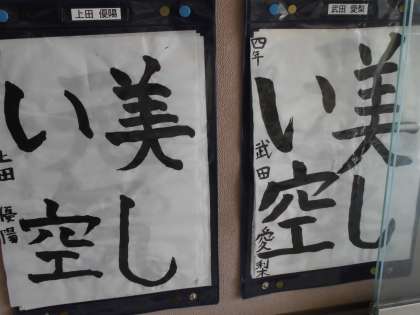 上田 優陽
美し
い空
上田 優陽
武田 愛梨
美し
い空
四年 武田 愛梨